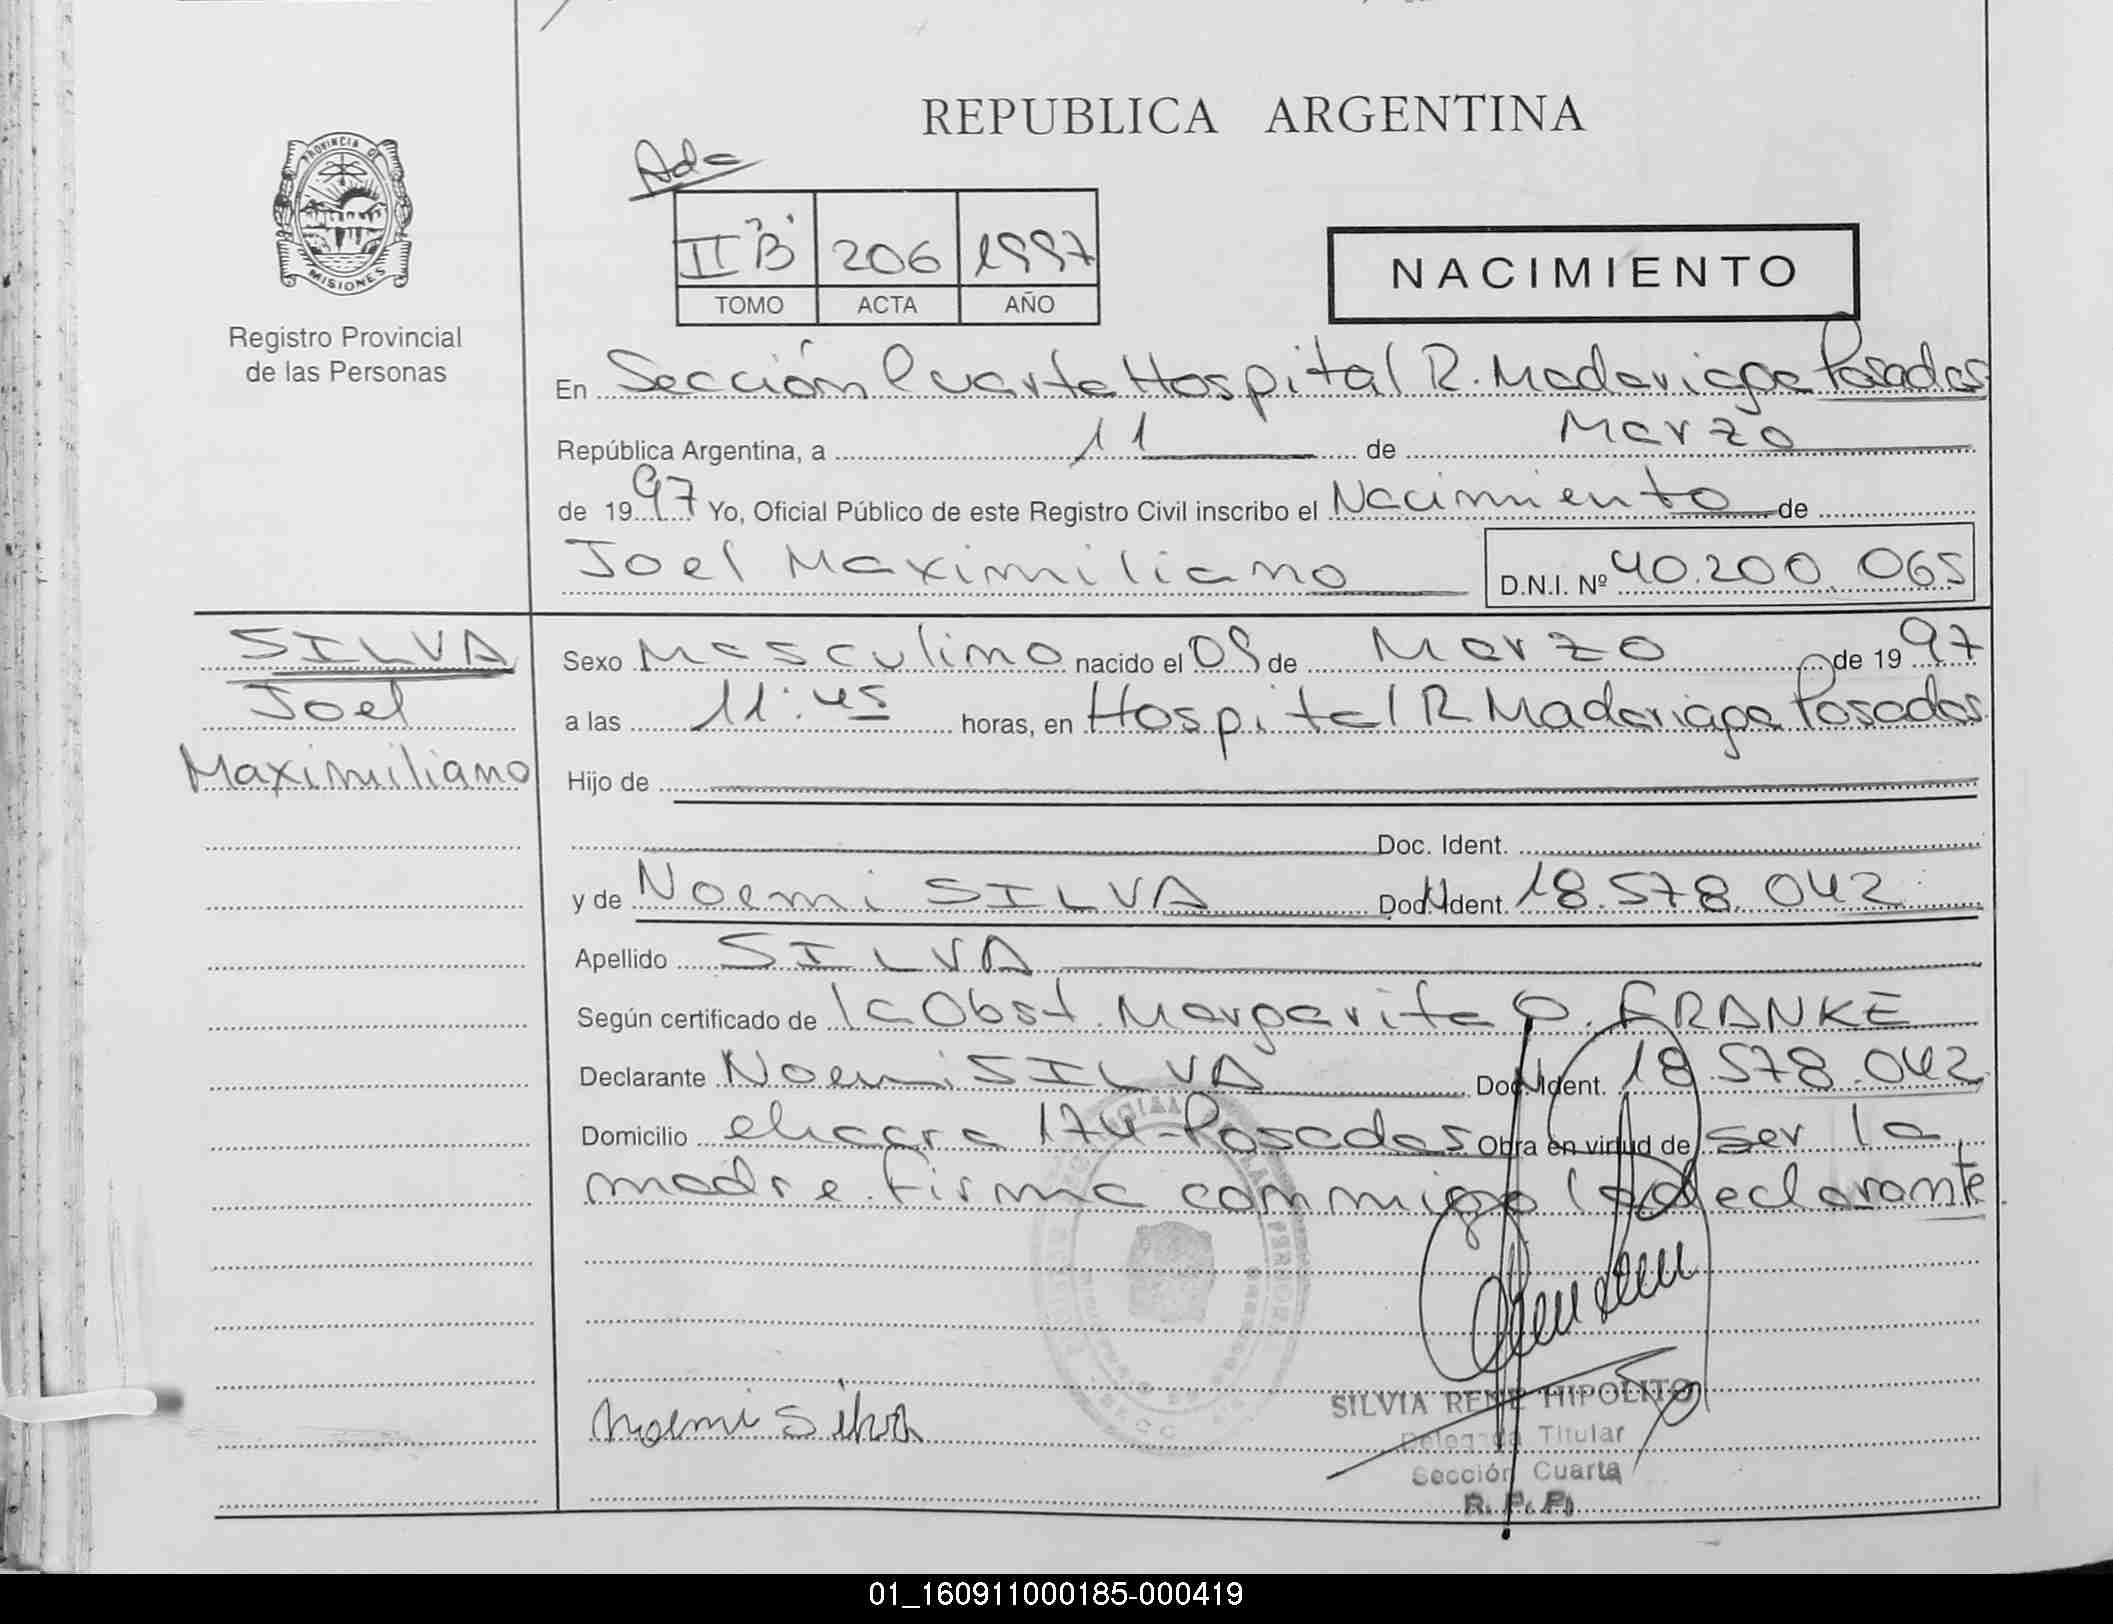 REPUBLICA ARGENTINA
PROVINCIA DE
MISIONES
Registro Provincial
de las Personas
II "B" 206 1997
TOMO ACTA AÑO
NACIMIENTO
En Sección Cuarta Hospital R. Madariaga Posadas
República Argentina, a 11 de Marzo
de 1997 Yo, Oficial Público de este Registro Civil inscribo el Nacimiento de
Joel Maximiliano D.N.I. Nº 40.200.065
SILVA
Joel
Maximiliano
Sexo Masculino nacido el 09 de Marzo de 1997
a las 11:45 horas, en Hospital R Madariaga Posadas
Hijo de
Doc. Ident.
y de Noemi SILVA Doc. Ident. 18.578.042
Apellido SILVA
Según certificado de la Obst. Margarita O. FRANKE
Declarante Noemi SILVA Doc. Ident. 18.578.042
Domicilio chacra 174-Posadas Obra en virtud de ser la
madre. Firma conmigo la declarante.
Noemi Silva
SILVIA RENE HIPOLITO
Delegada Titular
Sección Cuarta
R. P. P.
01_160911000185-000419